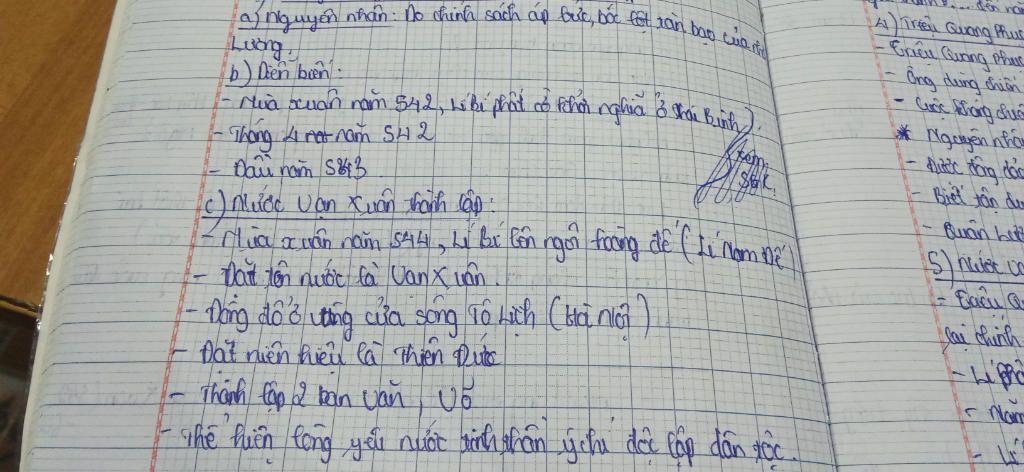 a) Nguyên nhân: Do chính sách áp bức, bóc lột tàn bạo của nhà
Lương.
b) Diễn biến:
- Mùa xuân năm 542, Lí Bí phất cờ khởi nghĩa ở Thái Bình
- Tháng 4 năm 542
- Đầu năm 543
xem SGK
c) Nước Vạn Xuân thành lập:
- Mùa xuân năm 544, Lí Bí lên ngôi hoàng đế (Lí Nam Đế)
- Đặt tên nước là Vạn Xuân.
- Đóng đô ở vùng cửa sông Tô Lịch (Hà Nội)
- Đặt niên hiệu là Thiên Đức
- Thành lập 2 ban văn, võ
- Thể hiện lòng yêu nước tinh thần ý chí độc lập dân tộc.
4) Triệu Quang Phục
- Triệu Quang Phục
- Ông dùng
- Cuộc kháng
* Nguyên nhân
- Được
- Biết tận
- Quân
5) Nước
lại chính
- Năm